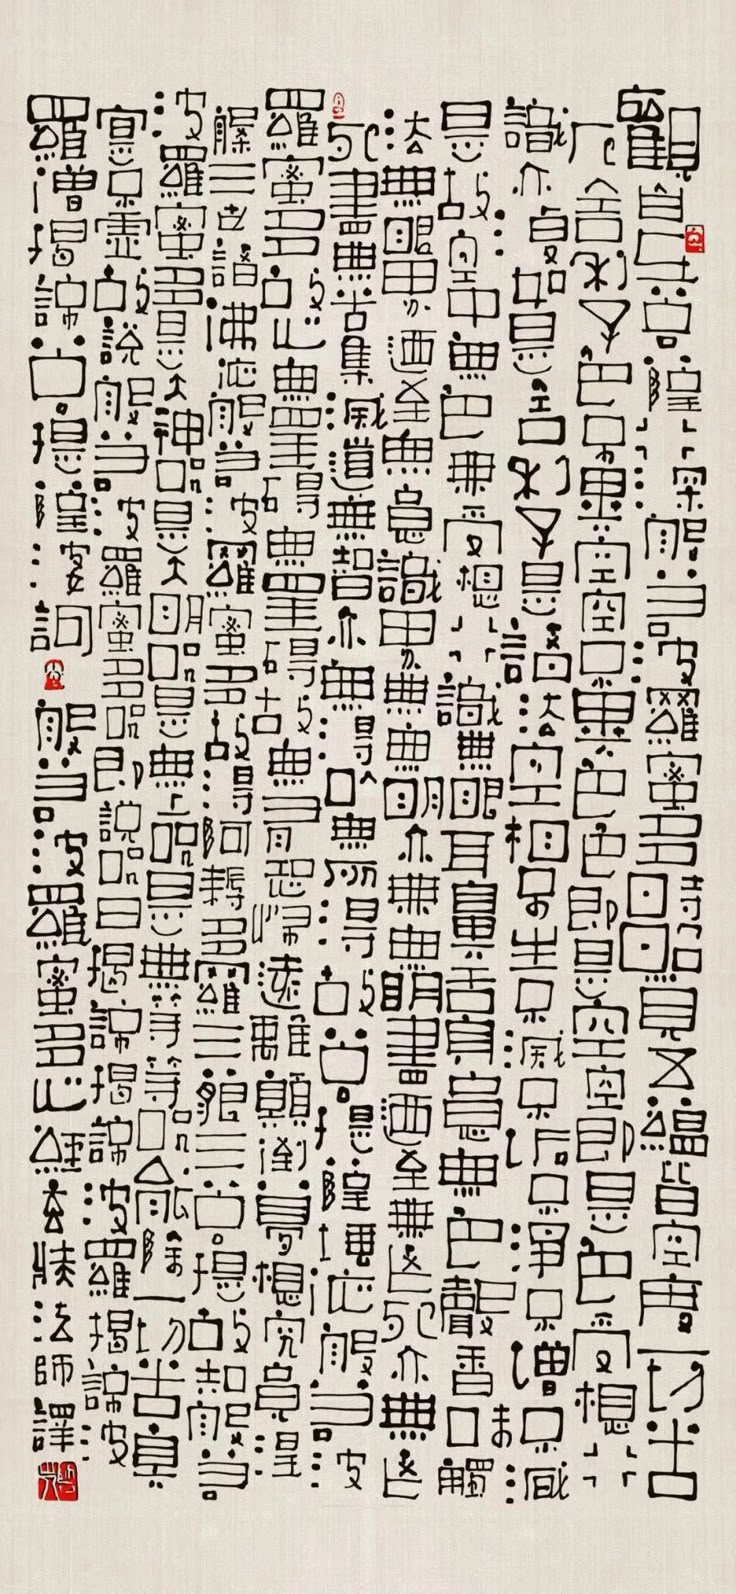 觀自在菩薩行深般若波羅蜜多時照見五蘊皆空度一切苦
厄舍利子色不異空空不異色色即是空空即是色受想行
識亦復如是舍利子是諸法空相不生不滅不垢不淨不增不減
是故空中無色無受想行識無眼耳鼻舌身意無色聲香味觸
法無眼界廼至無意識界無無明亦無無明盡廼至無老死亦無老
死盡無苦集滅道無智亦無得以無所得故菩提薩埵依般若波
羅蜜多故心無罣礙無罣礙故無有恐怖遠離顛倒夢想究竟涅
槃三世諸佛依般若波羅蜜多故得阿耨多羅三藐三菩提故知般若
波羅蜜多是大神咒是大明咒是無上咒是無等等咒能除一切苦真
實不虛故說般若波羅蜜多咒即說咒曰揭諦揭諦波羅揭諦波
羅僧揭諦菩提薩婆訶般若波羅蜜多心經玄奘法師譯